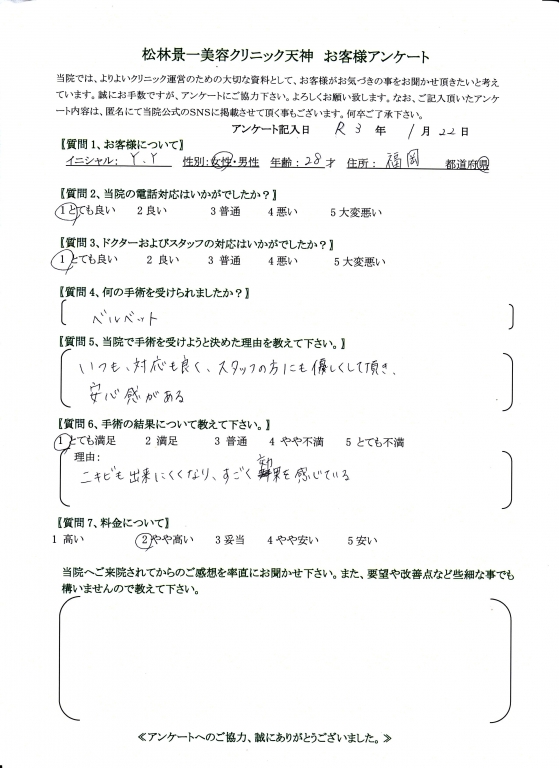 松林景一美容クリニック天神 お客様アンケート
当院では、よりよいクリニック運営のための大切な資料として、お客様がお気づきの事をお聞かせ頂きたいと考え
ています。誠にお手数ですが、アンケートにご協力下さい。よろしくお願い致します。なお、ご記入頂いたアンケ
ート内容は、匿名にて当院公式のSNSに掲載させて頂く事もございます。何卒ご了承下さい。
アンケート記入日 R3 年 1 月 22 日
【質問1、お客様について】
イニシャル: Y.Y 性別:女性・男性 年齢:28才 住所: 福岡 都道府県
【質問2、当院の電話対応はいかがでしたか?】
1とても良い 2良い 3普通 4悪い 5大変悪い
【質問3、ドクターおよびスタッフの対応はいかがでしたか?】
1とても良い 2 良い 3 普通 4悪い 5大変悪い
【質問4、何の手術を受けられましたか?】
ベルベット
【質問5、当院で手術を受けようと決めた理由を教えて下さい。】
いつも、対応も良く、スタッフの方にも優しくして頂き、
安心感がある
【質問6、手術の結果について教えて下さい。】
1とても満足 2 満足 3 普通 4 やや不満 5 とても不満
理由:
ニキビも出来にくくなり、すごく効果を感じている
【質問7、料金について】
1 高い 2やや高い 3妥当 4やや安い 5安い
当院へご来院されてからのご感想を率直にお聞かせ下さい。また、要望や改善点など些細な事でも
構いませんので教えて下さい。
≪アンケートへのご協力、誠にありがとうございました。≫